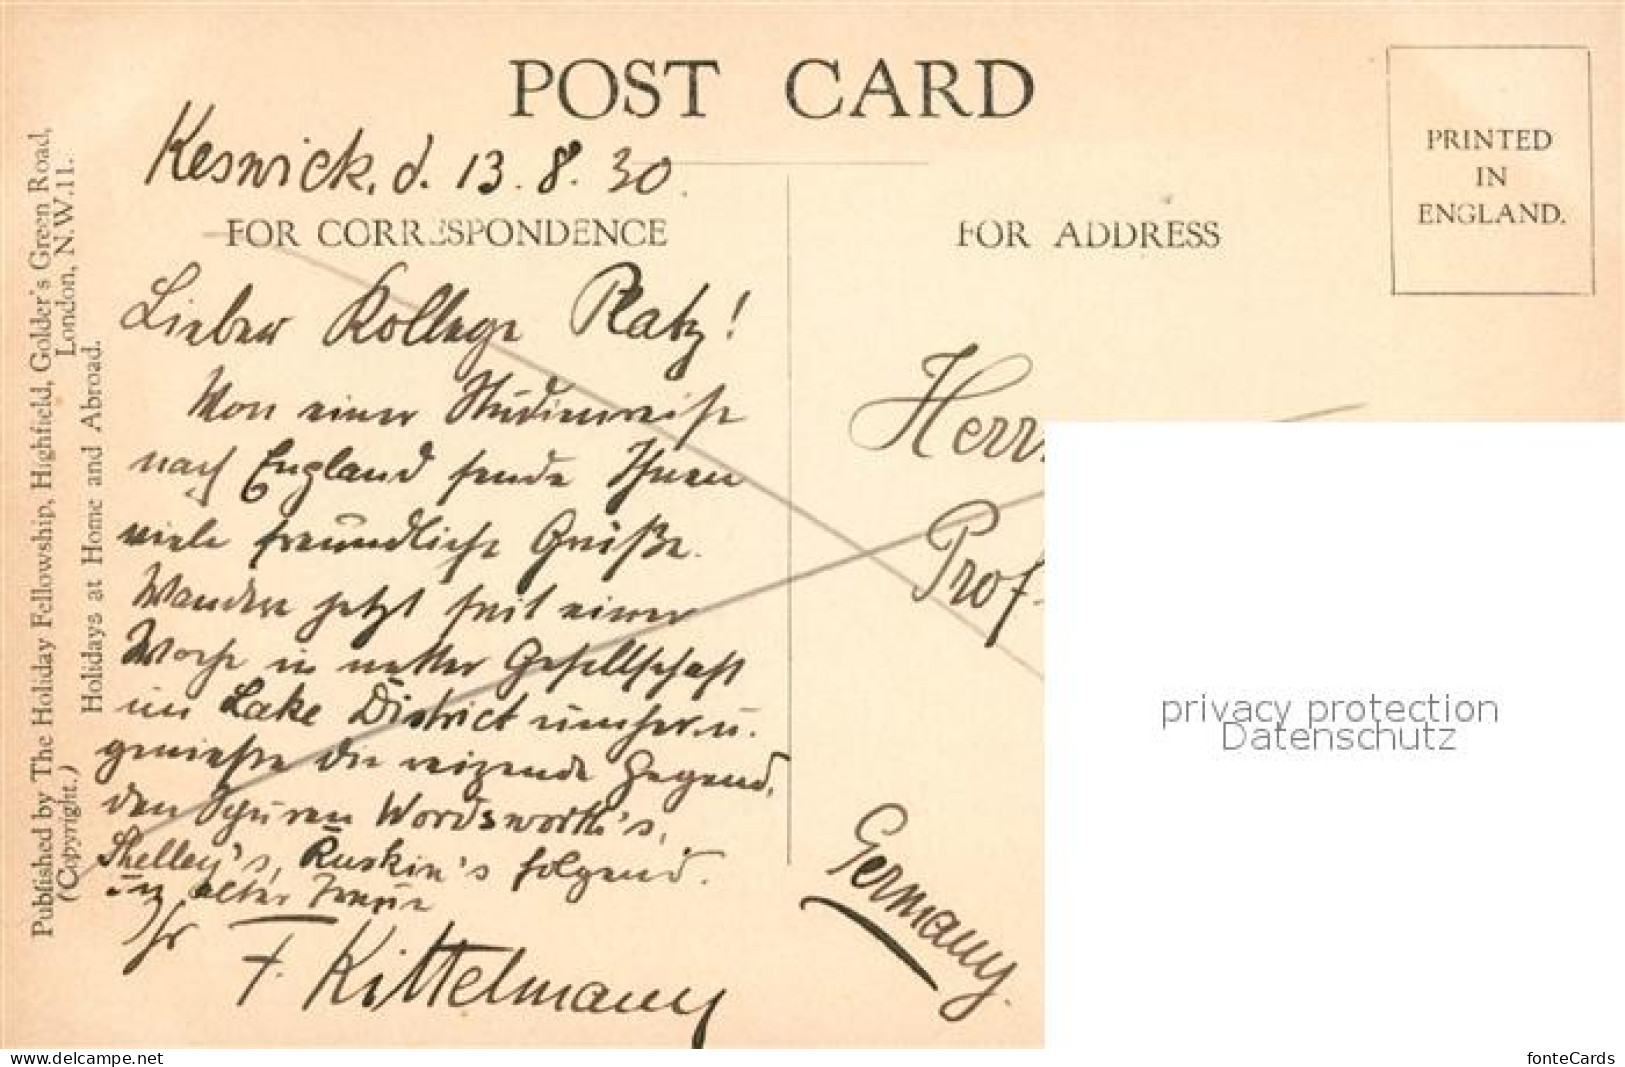 POST CARD
Keswick, d. 13. 8. 30.
FOR CORRESPONDENCE
Lieber Kollege Platz!
Von einer Studienreise
nach England sende Ihnen
viele freundliche Grüße.
Wandere jetzt seit einer
Woche in netter Gesellschaft
im Lake District umher u.
genieße die reizende Gegend,
den Spuren Wordsworth's,
Shelley's, Ruskin's folgend.
In alter Treue
Ihr
F. Kittelmann
FOR ADDRESS
PRINTED
IN
ENGLAND.
Herrn
Prof.
Germany.
Published by The Holiday Fellowship, Highfield, Golder's Green Road,
(Copyright.) London, N.W.11.
Holidays at Home and Abroad.
privacy protection
Datenschutz
www.delcampe.net
fonteCards